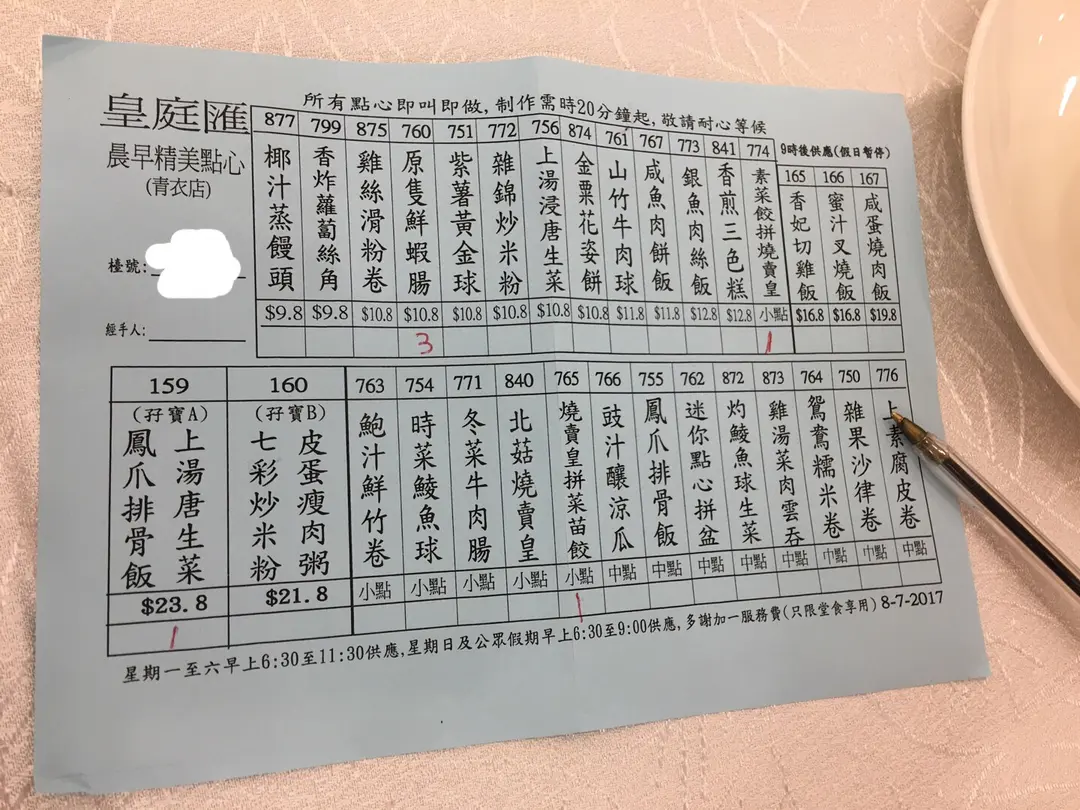 所有點心即叫即做,制作需時20分鐘起,敬請耐心等候
皇庭匯
晨早精美點心
(青衣店)
檯號:
經手人:
877 799 875 760 751 772 756 874 761 767 773 841 774
椰汁蒸饅頭 香炸蘿蔔絲角 雞絲滑粉卷 原隻鮮蝦腸 紫薯黃金球 雜錦炒米粉 上湯浸唐生菜 金粟花姿餅 山竹牛肉球 咸魚肉餅飯 銀魚肉絲飯 香煎三色糕 素菜餃拼燒賣皇
$9.8 $9.8 $10.8 $10.8 $10.8 $10.8 $10.8 $10.8 $11.8 $11.8 $12.8 $12.8 小點
3 1
9時後供應(假日暫停)
165 166 167
香妃切雞飯 蜜汁叉燒飯 咸蛋燒肉飯
$16.8 $16.8 $19.8
159 160 763 754 771 840 765 766 755 762 872 873 764 750 776
(孖寶A) (孖寶B)
上湯唐生菜 鳳爪排骨飯 皮蛋瘦肉粥 七彩炒米粉 鮑汁鮮竹卷 時菜鯪魚球 冬菜牛肉腸 北菇燒賣皇 燒賣皇拼菜苗餃 豉汁釀涼瓜 鳳爪排骨飯 迷你點心拼盆 灼鯪魚球生菜 雞湯菜肉雲吞 鴛鴦糯米卷 雜果沙律卷 上素腐皮卷
$23.8 $21.8 小點 小點 小點 小點 小點 中點 中點 中點 中點 中點 中點 中點 中點
1 1
星期一至六早上6:30至11:30供應,星期日及公眾假期早上6:30至9:00供應,多謝加一服務費(只限堂食享用) 8-7-2017